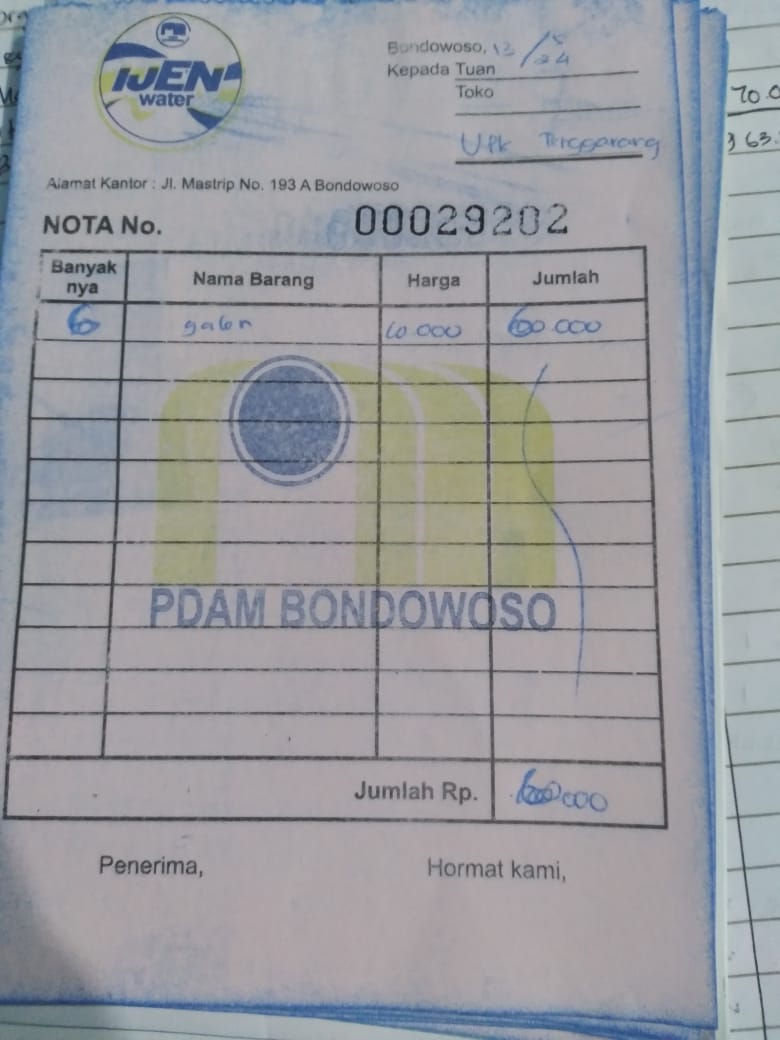 IJEN
water
Bondowoso, 13/5/24
Kepada Tuan
Toko
Upk Tenggarang
Alamat Kantor : Jl. Mastrip No. 193 A Bondowoso
NOTA No. 00029202
Banyak nya Nama Barang Harga Jumlah
6 galon 10.000 60.000
PDAM BONDOWOSO
Jumlah Rp. 60.000
Penerima, Hormat kami,